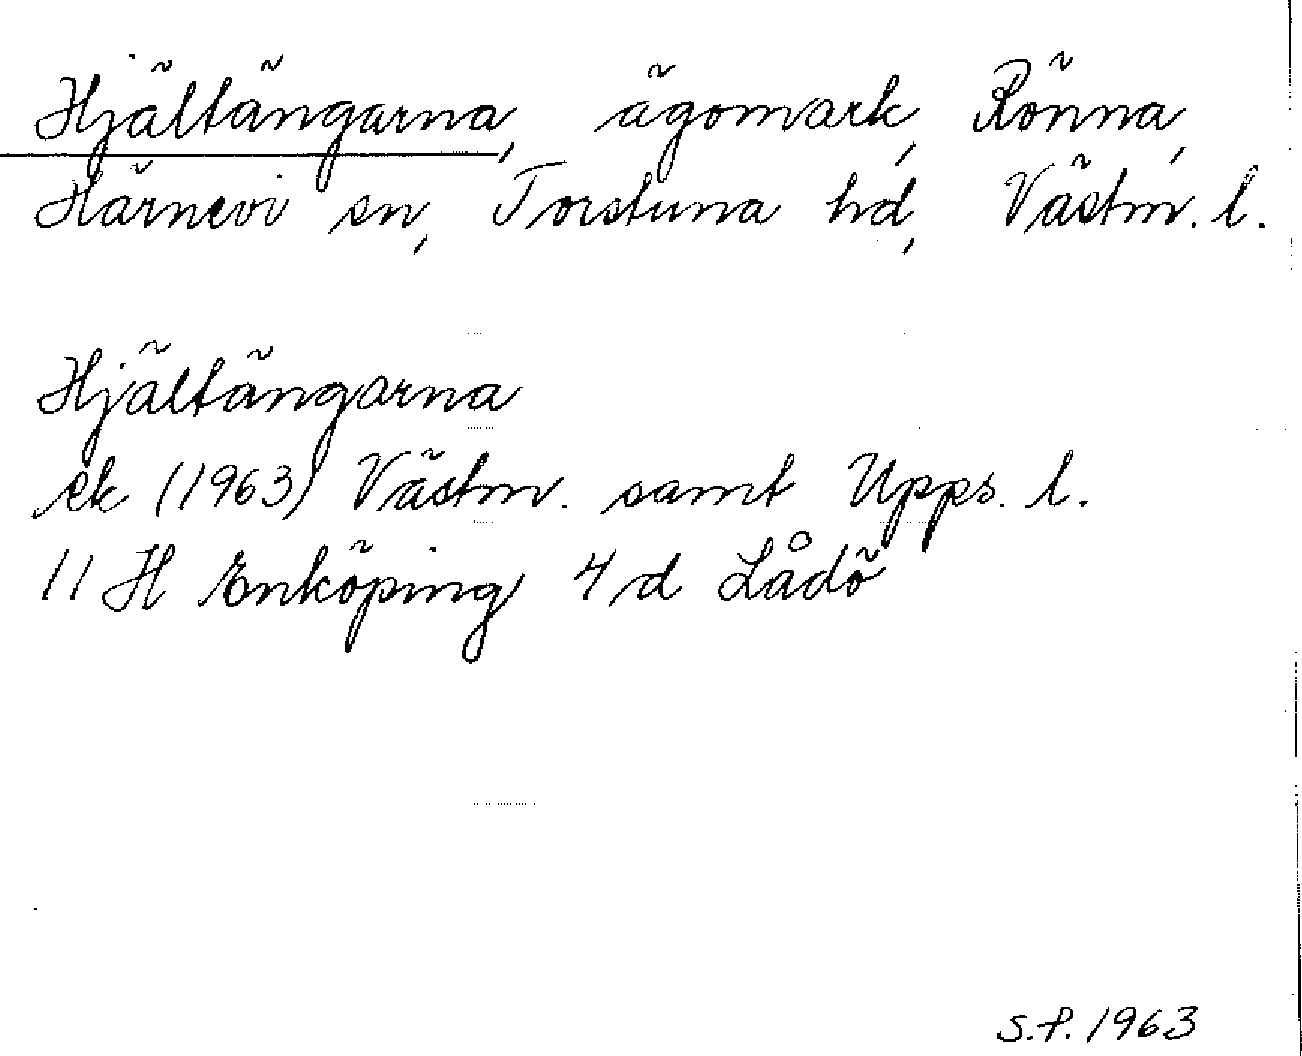 Hjältängarna, ägomark, Rönna,
Härnevi sn, Torstuna hd, Västm. l.
Hjältängarna
ek (1963) Västm. samt Upps. l.
11 H Enköping 4d Lådö
S.P. 1963